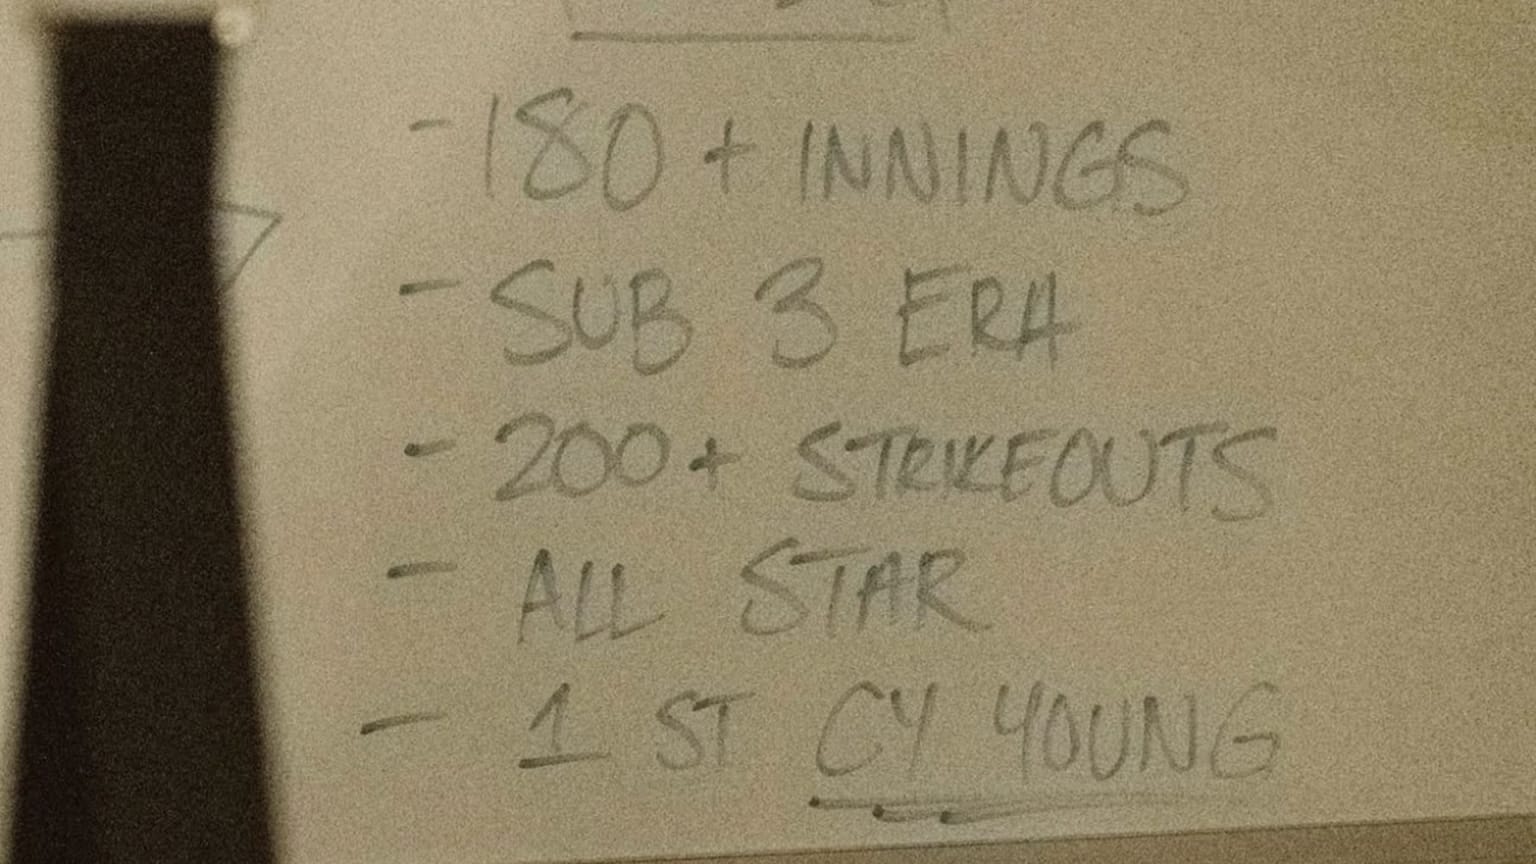 - 180 + INNINGS
- SUB 3 ERA
- 200+ STRIKEOUTS
- ALL STAR
- 1 ST CY YOUNG